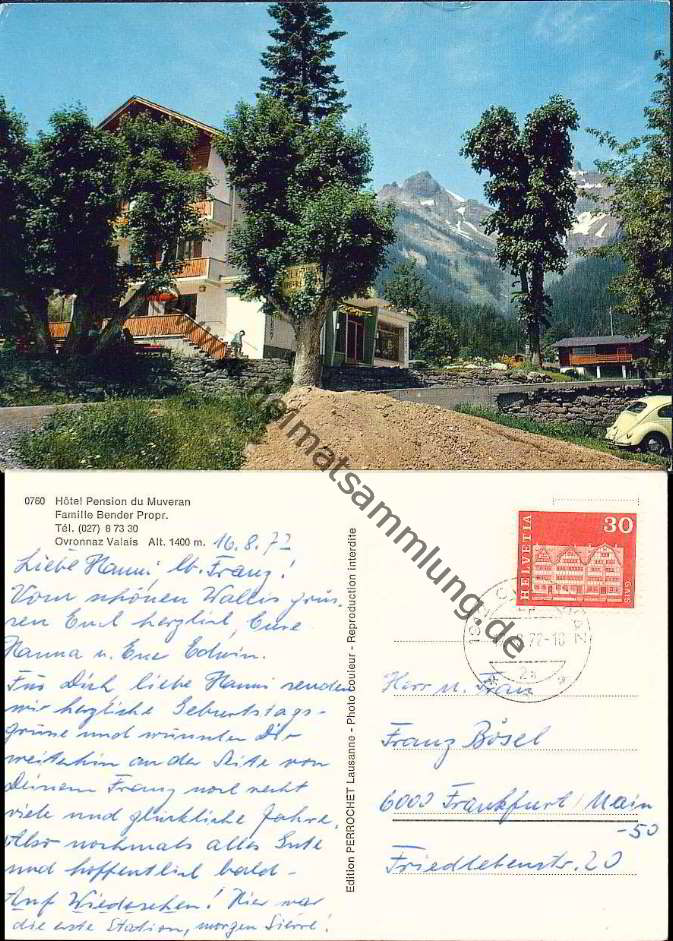 heimatsammlung.de
0760 Hôtel Pension du Muveran
Famille Bender Propr.
Tél. (027) 8 73 30
Ovronnaz Valais Alt. 1400 m.
16.8.72
Liebe Hanni, lb. Franz!
Vom schönen Wallis grüs-
sen Euch herzlich, Eure
Hanna u. Euer Edwin.
Für Dich liebe Hanni senden
wir herzliche Geburtstags-
grüsse und wünschen Dir
weiterhin an der Seite von
Deinem Franz noch recht
viele und glückliche Jahre.
Also nochmals alles Gute
und hoffentlich bald -
Auf Wiedersehen! Hier war
die erste Station, morgen Sierre!
Edition PERROCHET Lausanne - Photo couleur - Reproduction interdite
HELVETIA
30
GAIS
72-18
Herr u. Frau
Franz Bösel
6000 Frankfurt/Main
-50
Friedlebenstr. 20